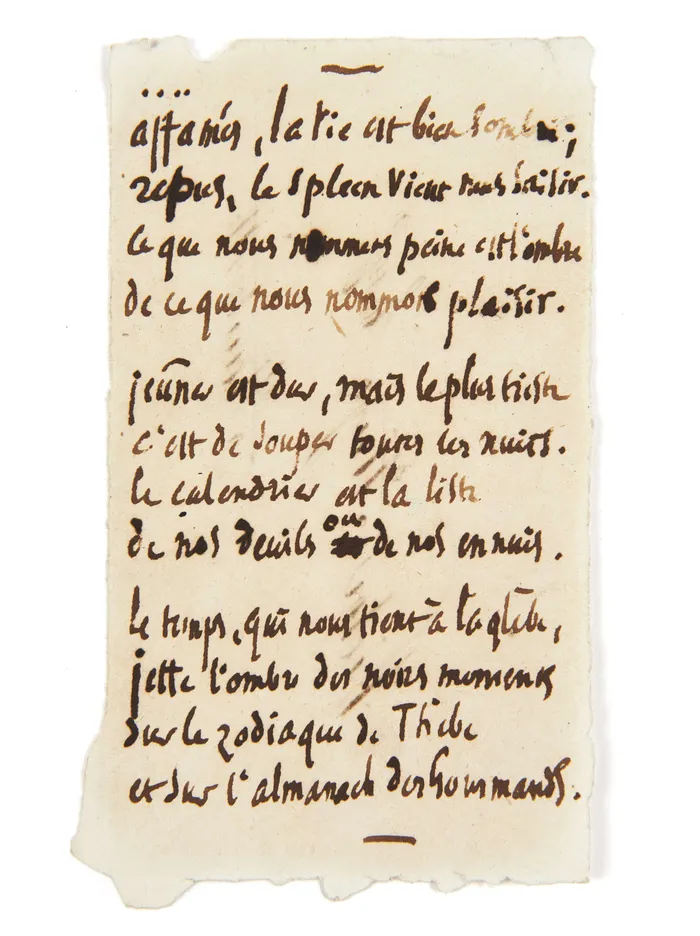 ....
affamés, la vie est bien sombre;
repus, le spleen vient nous saisir.
ce que nous nommons peine est l'ombre
de ce que nous nommons plaisir.
jeûner est dur, mais le plus triste
c'est de souper toutes les nuits.
le calendrier est la liste
de nos deuils ou de nos ennuis.
le temps, qui nous tient à la glèbe,
jette l'ombre des noirs moments
sur le zodiaque de Thèbe
et sur l'almanach des Gourmands.